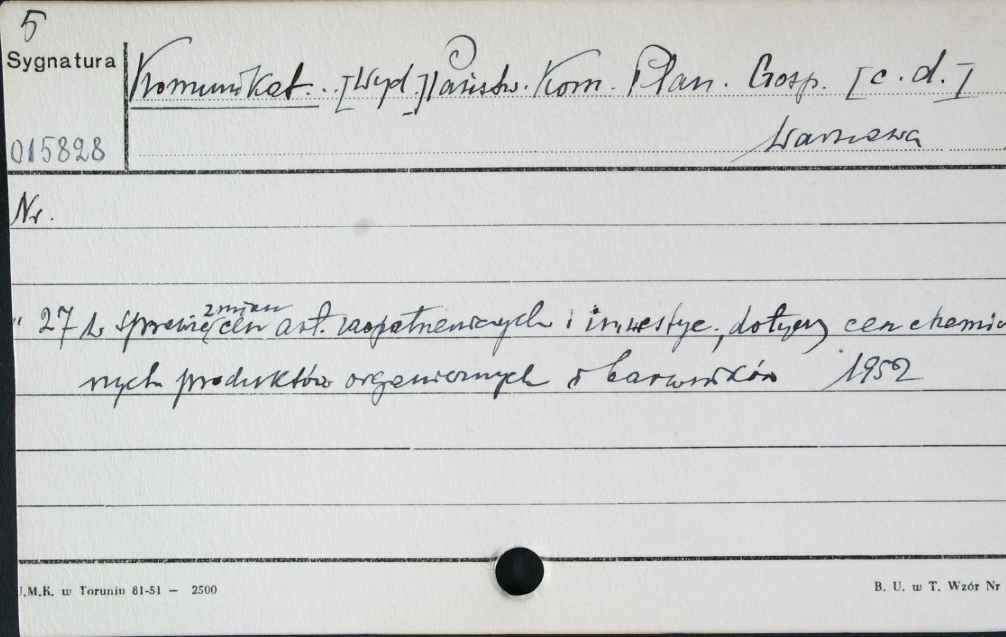 5
Sygnatura
Komunikat... [Wyd.] Państw. Kom. Plan. Gosp. [c.d.]
015828
Warszawa
Nr.
" 27 W sprawie zmian cen art. zaopatrzeniowych i inwestyc., dotyczy cen chemicz
nych produktów organicznych i barwników 1952
U.M.K. w Toruniu 81-51 — 2500
B. U. w T. Wzór Nr